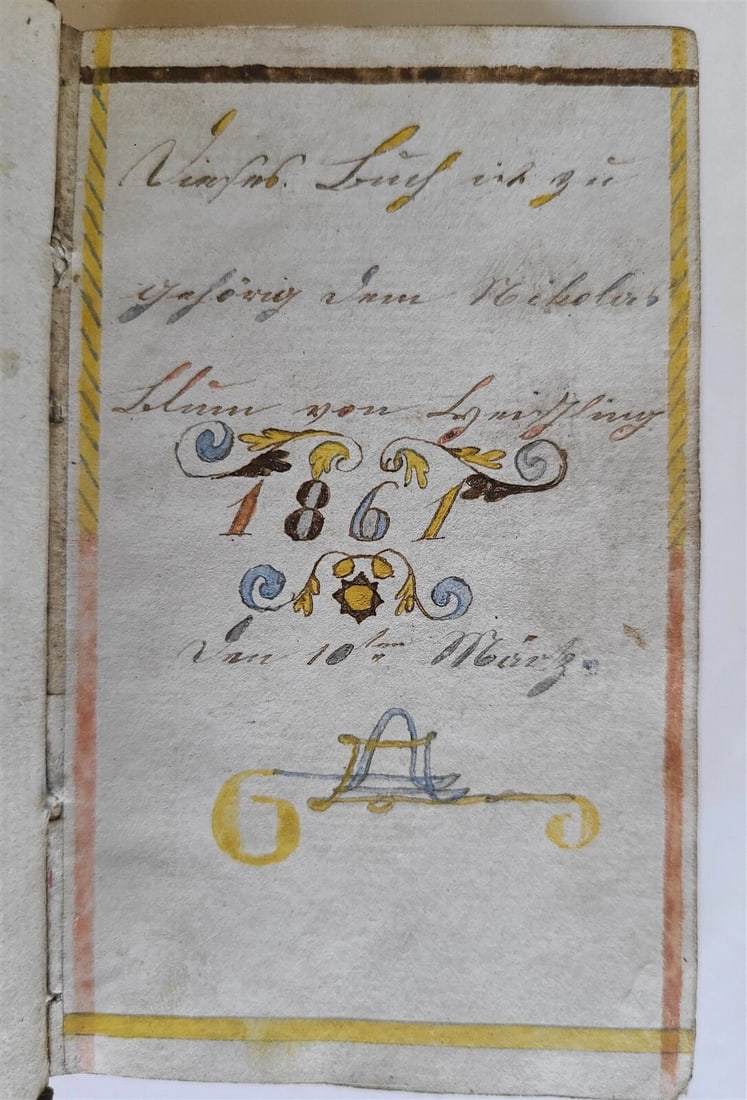 Dieses Buch ist zu
gehörig dem Nikolas
Blum von
1861
Den 10ten März.